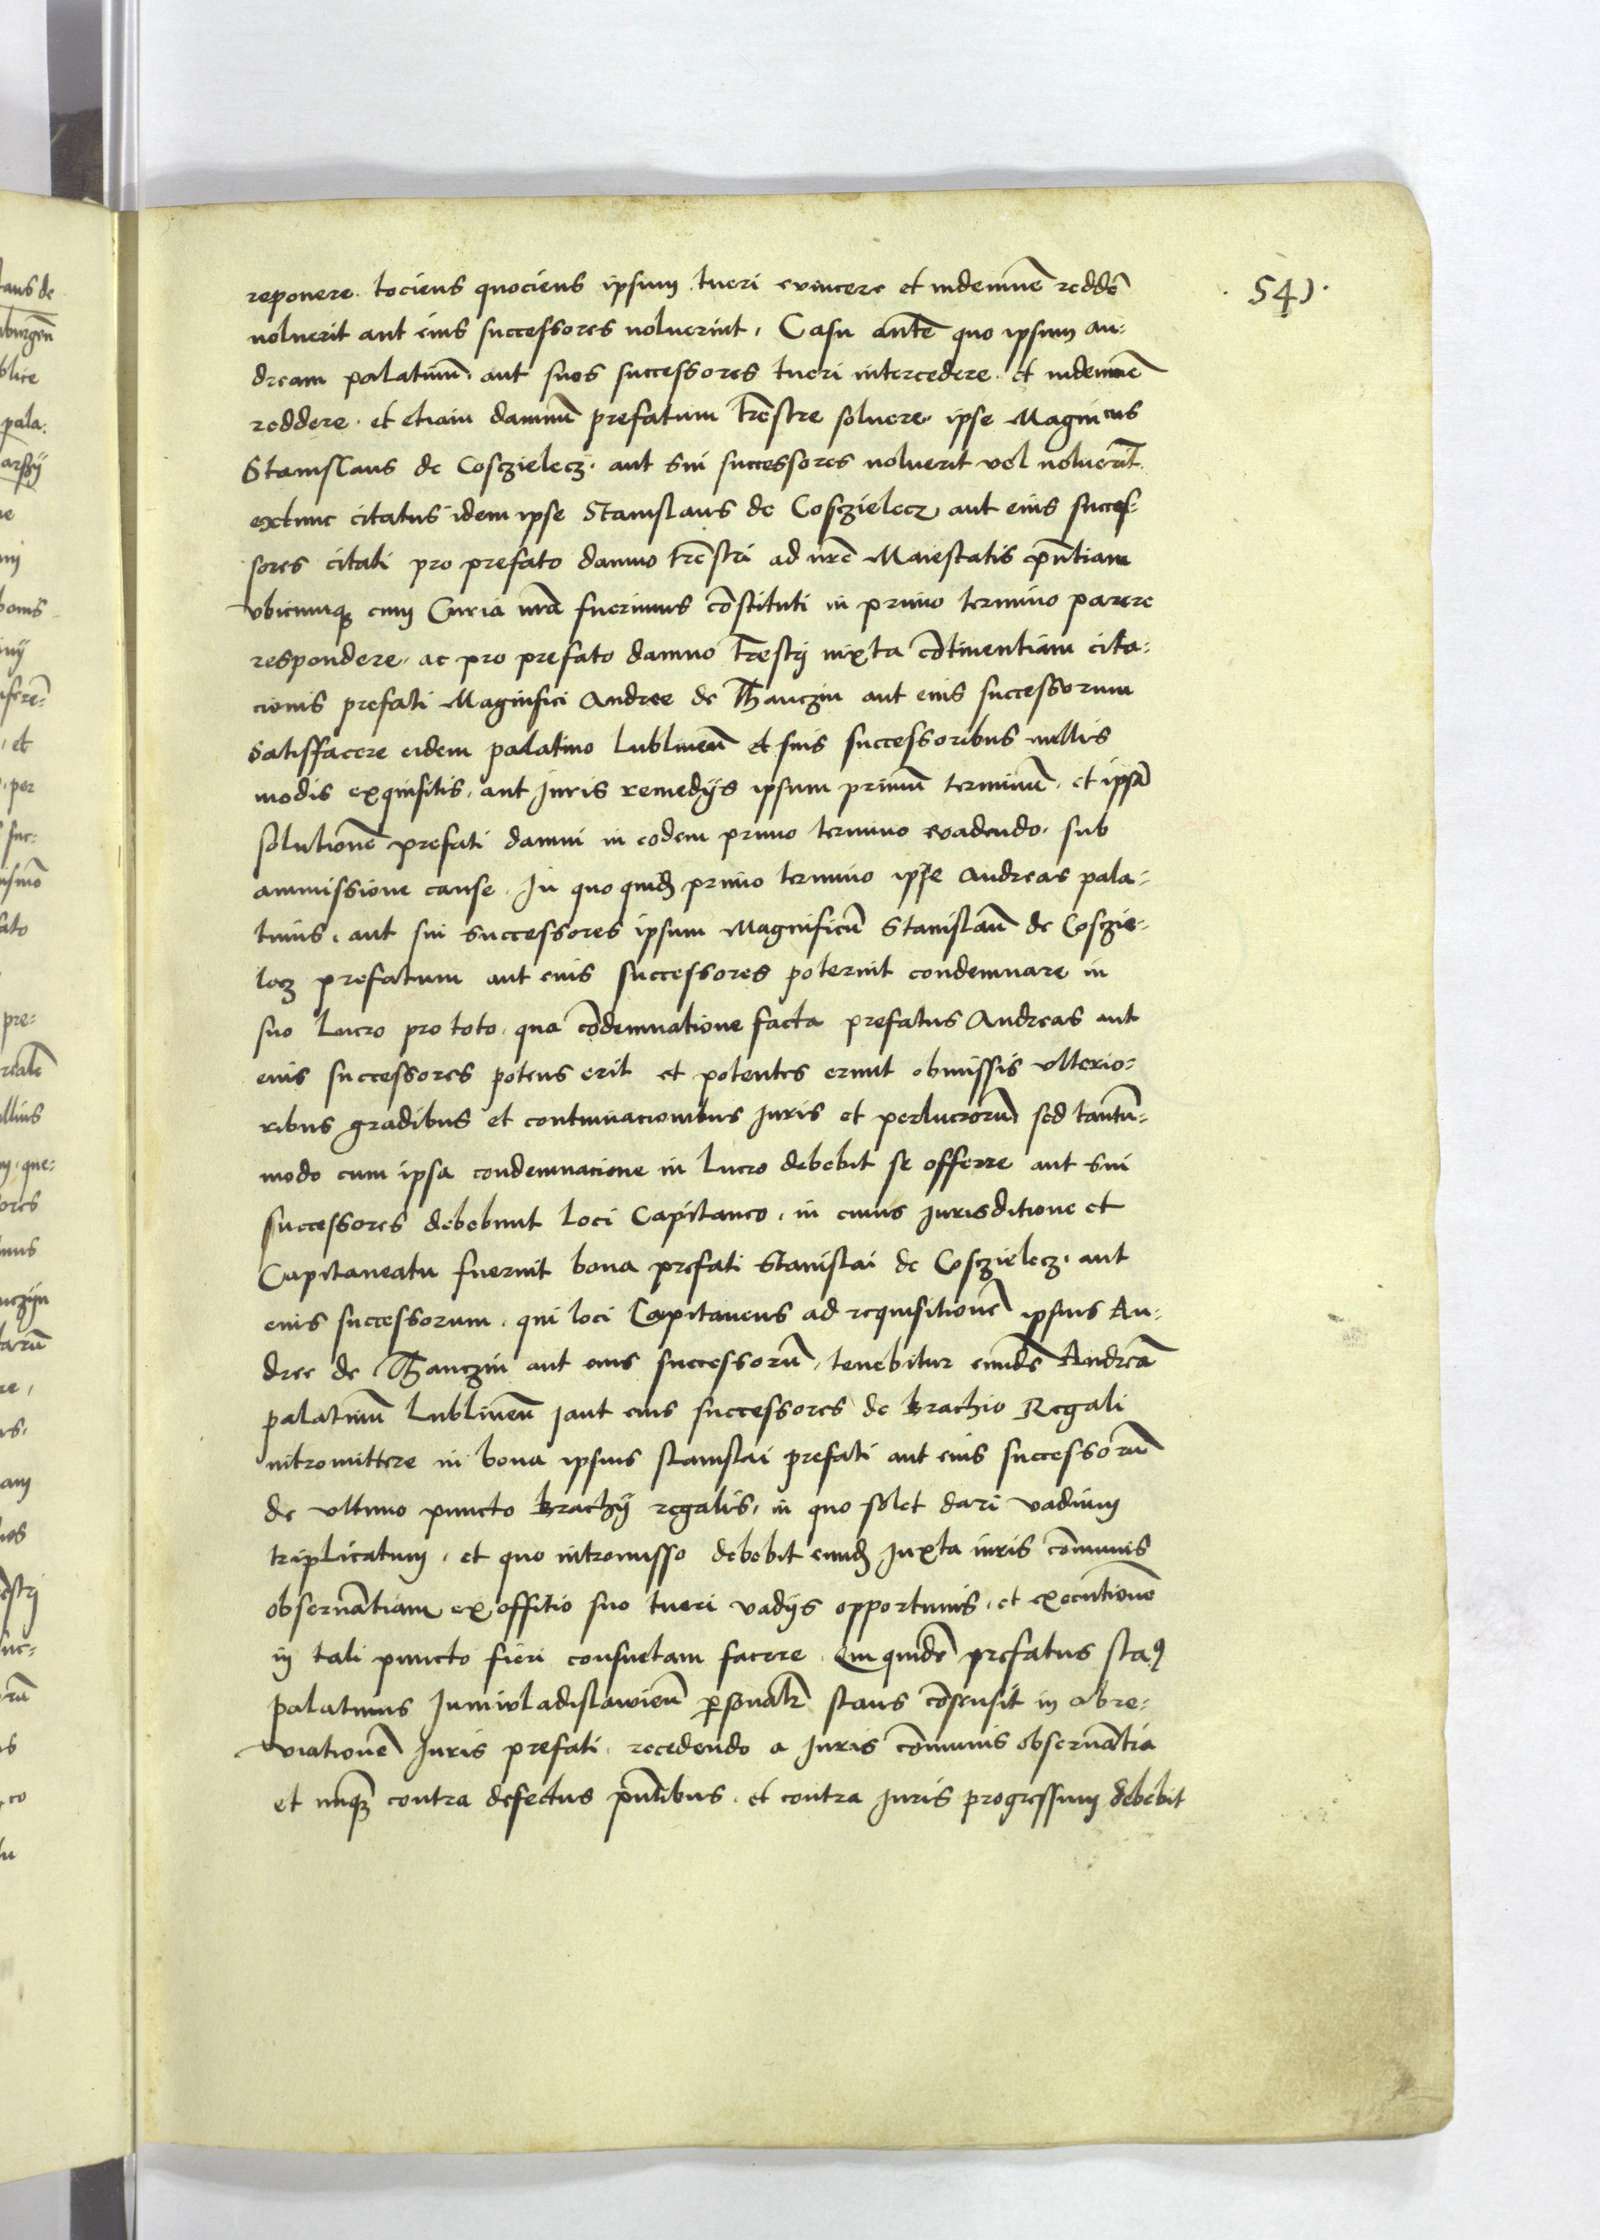 541
reponere. tociens quociens ipsum tueri evincere et indemnē reddē
noluerit aut eius successores noluerint. Casu autē quo ipsum an-
dream palatinū aut suos successores tueri intercedere et indemnē
reddere. et etiam damnū prefatum trēstre soluere ipse Magnicus
Stanislaus de Cosczielecz. aut sui successores noluerit vel noluerīt
extunc citatus idem ipse Stanislaus de Cosczielecz aut eius succes-
sores citati pro prefato damno trēstri ad nrē Maiestatis pn̄tiam
vbicumqȝ cum Curia nrā fuerimus cōstituti in primo termino parere
respondere. ac pro prefato damno trēstrj iuxta cōtinentiam cita-
cionis prefati Magnifici Andree de Thanczin aut eius successorum
satisffacere eidem palatino lublineñ et suis successoribus nullis
modis exquisitis. aut Juris remedijs ipsum primū terminū. et ipsā
solutionē prefati damni in eodem primo termino evadendo. sub
ammissione cause. In quo quidē primo termino ipse Andreas pala-
tinus. aut sui successores ipsum Magnificū Stanislaū de Cosczie-
lecz prefatum aut eius successores poterint condemnare in
suo lucro pro toto. qua cōdemnatione facta prefatus Andreas aut
eius successores potens erit et potentes erunt obmissis vlterio-
ribus gradibus et continuacionibus Juris et perlucrorū sed tantū-
modo cum ipsa condemnacione in lucro debebit se offerre aut sui
successores debebunt loci Capitaneo. in cuius Jurisditione et
Capitaneatu fuerint bona prefati Stanislai de Cosczielecz. aut
eius successorum. qui loci Capitaneus ad requisitionē ipsius An-
dree de Thanczin aut eius successorū. tenebitur eundē Andreā
palatinū lublineñ aut eius successores de brachio Regali
intromittere in bona ipsius stanislai prefati aut eius successorū
de vltimo puncto brachij regalis. in quo solet dari vadium
triplicatum. et quo intromisso debebit eundē Juxta iuris cōmunis
obseruātiam ex offitio suo tueri vadijs opportunis. et executionē
in tali puncto fieri consuetam facere. Qui quidē prefatus staꝰ
palatinus Juniwladislawieñ ꝑsonalr̄ stans cōsensit in abre-
viationē Juris prefati. recedendo a Juris cōmunis obseruātia
et nūqȝ contra defectus pn̄tibus. et contra Juris progressum debebit